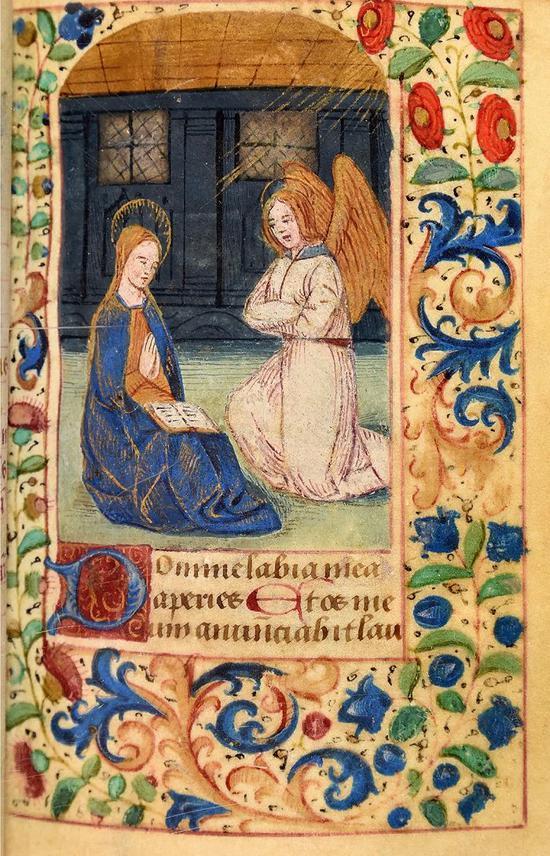 Domine labia mea
aperies Et os me
um anunciabit lau